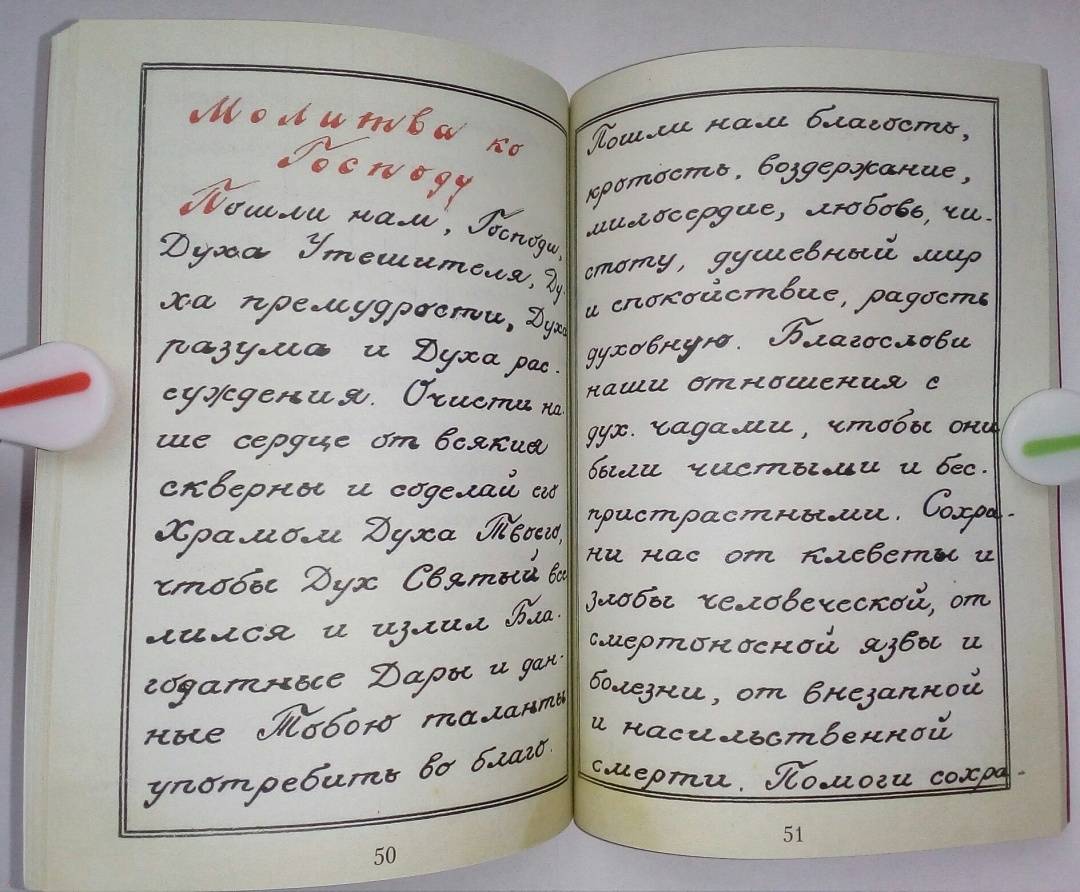 Молитва ко
Господу
Пошли нам, Господи,
Духа Утешителя, Ду-
ха премудрости, Духа
разума и Духа рас-
суждения. Очисти на-
ше сердце от всякия
скверны и соделай его
Храмом Духа Твоего,
чтобы Дух Святый все
лился и излил Бла-
годатные Дары и дан-
ные Тобою таланты
употребить во благо.
50
Пошли нам благость,
кротость, воздержание,
милосердие, любовь, чи-
стоту, душевный мир
и спокойствие, радость
духовную. Благослови
наши отношения с
дух. чадами, чтобы они
были чистыми и бес-
пристрастными. Сохра-
ни нас от клеветы и
злобы человеческой, от
смертоносной язвы и
болезни, от внезапной
и насильственной
смерти. Помоги сохра-
51